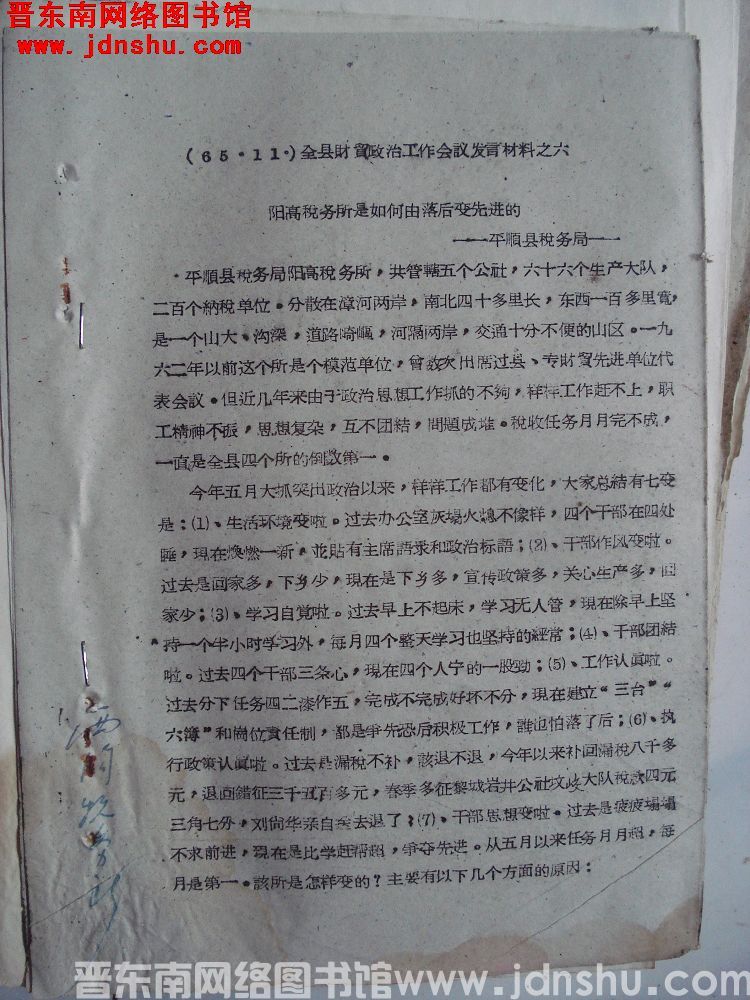 晋东南网络图书馆
www.jdnshu.com
(65·11·)全县財貿政治工作会议发言材料之六
阳高稅务所是如何由落后变先进的
——平順县稅务局——
平順县稅务局阳高稅务所，共管轄五个公社，六十六个生产大队，
二百个納稅单位。分散在漳河两岸，南北四十多里长，东西一百多里寬，
是一个山大、沟深，道路崎嶇，河隔两岸，交通十分不便的山区。一九
六二年以前这个所是个模范单位，曾数次出席过县、专財貿先进单位代
表会议。但近几年来由于政治思想工作抓的不夠，样样工作赶不上，职
工精神不振，思想复杂，互不团結，問題成堆。稅收任务月月完不成，
一直是全县四个所的倒数第一。
今年五月大抓突出政治以来，样样工作都有变化，大家总結有七变
是：(1)、生活环境变啦。过去办公室灰塌火熄不像样，四个干部在四处
睡，現在煥燃一新，並貼有主席語录和政治标語；(2)、干部作风变啦。
过去是回家多，下乡少，現在是下乡多，宣传政策多，关心生产多，回
家少；(3)、学习自覚啦。过去早上不起床，学习无人管，現在除早上坚
持一个半小时学习外，每月四个整天学习也坚持的經常；(4)、干部团結
啦。过去四个干部三条心，現在四个人宁的一股勁；(5)、工作认眞啦。
过去分下任务四二漆作五，完成不完成好坏不分，現在建立“三台”“
六簿”和崗位責任制，都是爭先恐后积极工作，誰也怕落了后；(6)、执
行政策认眞啦。过去是漏稅不补，該退不退，今年以来补回漏稅八千多
元，退回錯征三千五百多元，春季多征黎城岩井公社坟岐大队稅款四元
三角七分，刘尙华亲自去退了；(7)、干部思想变啦。过去是疲疲塌塌
不求前进，現在是比学赶帮超，爭夺先进。从五月以来任务月月超，每
月是第一。該所是怎样变的？主要有以下几个方面的原因：
晋东南网络图书馆www.jdnshu.com